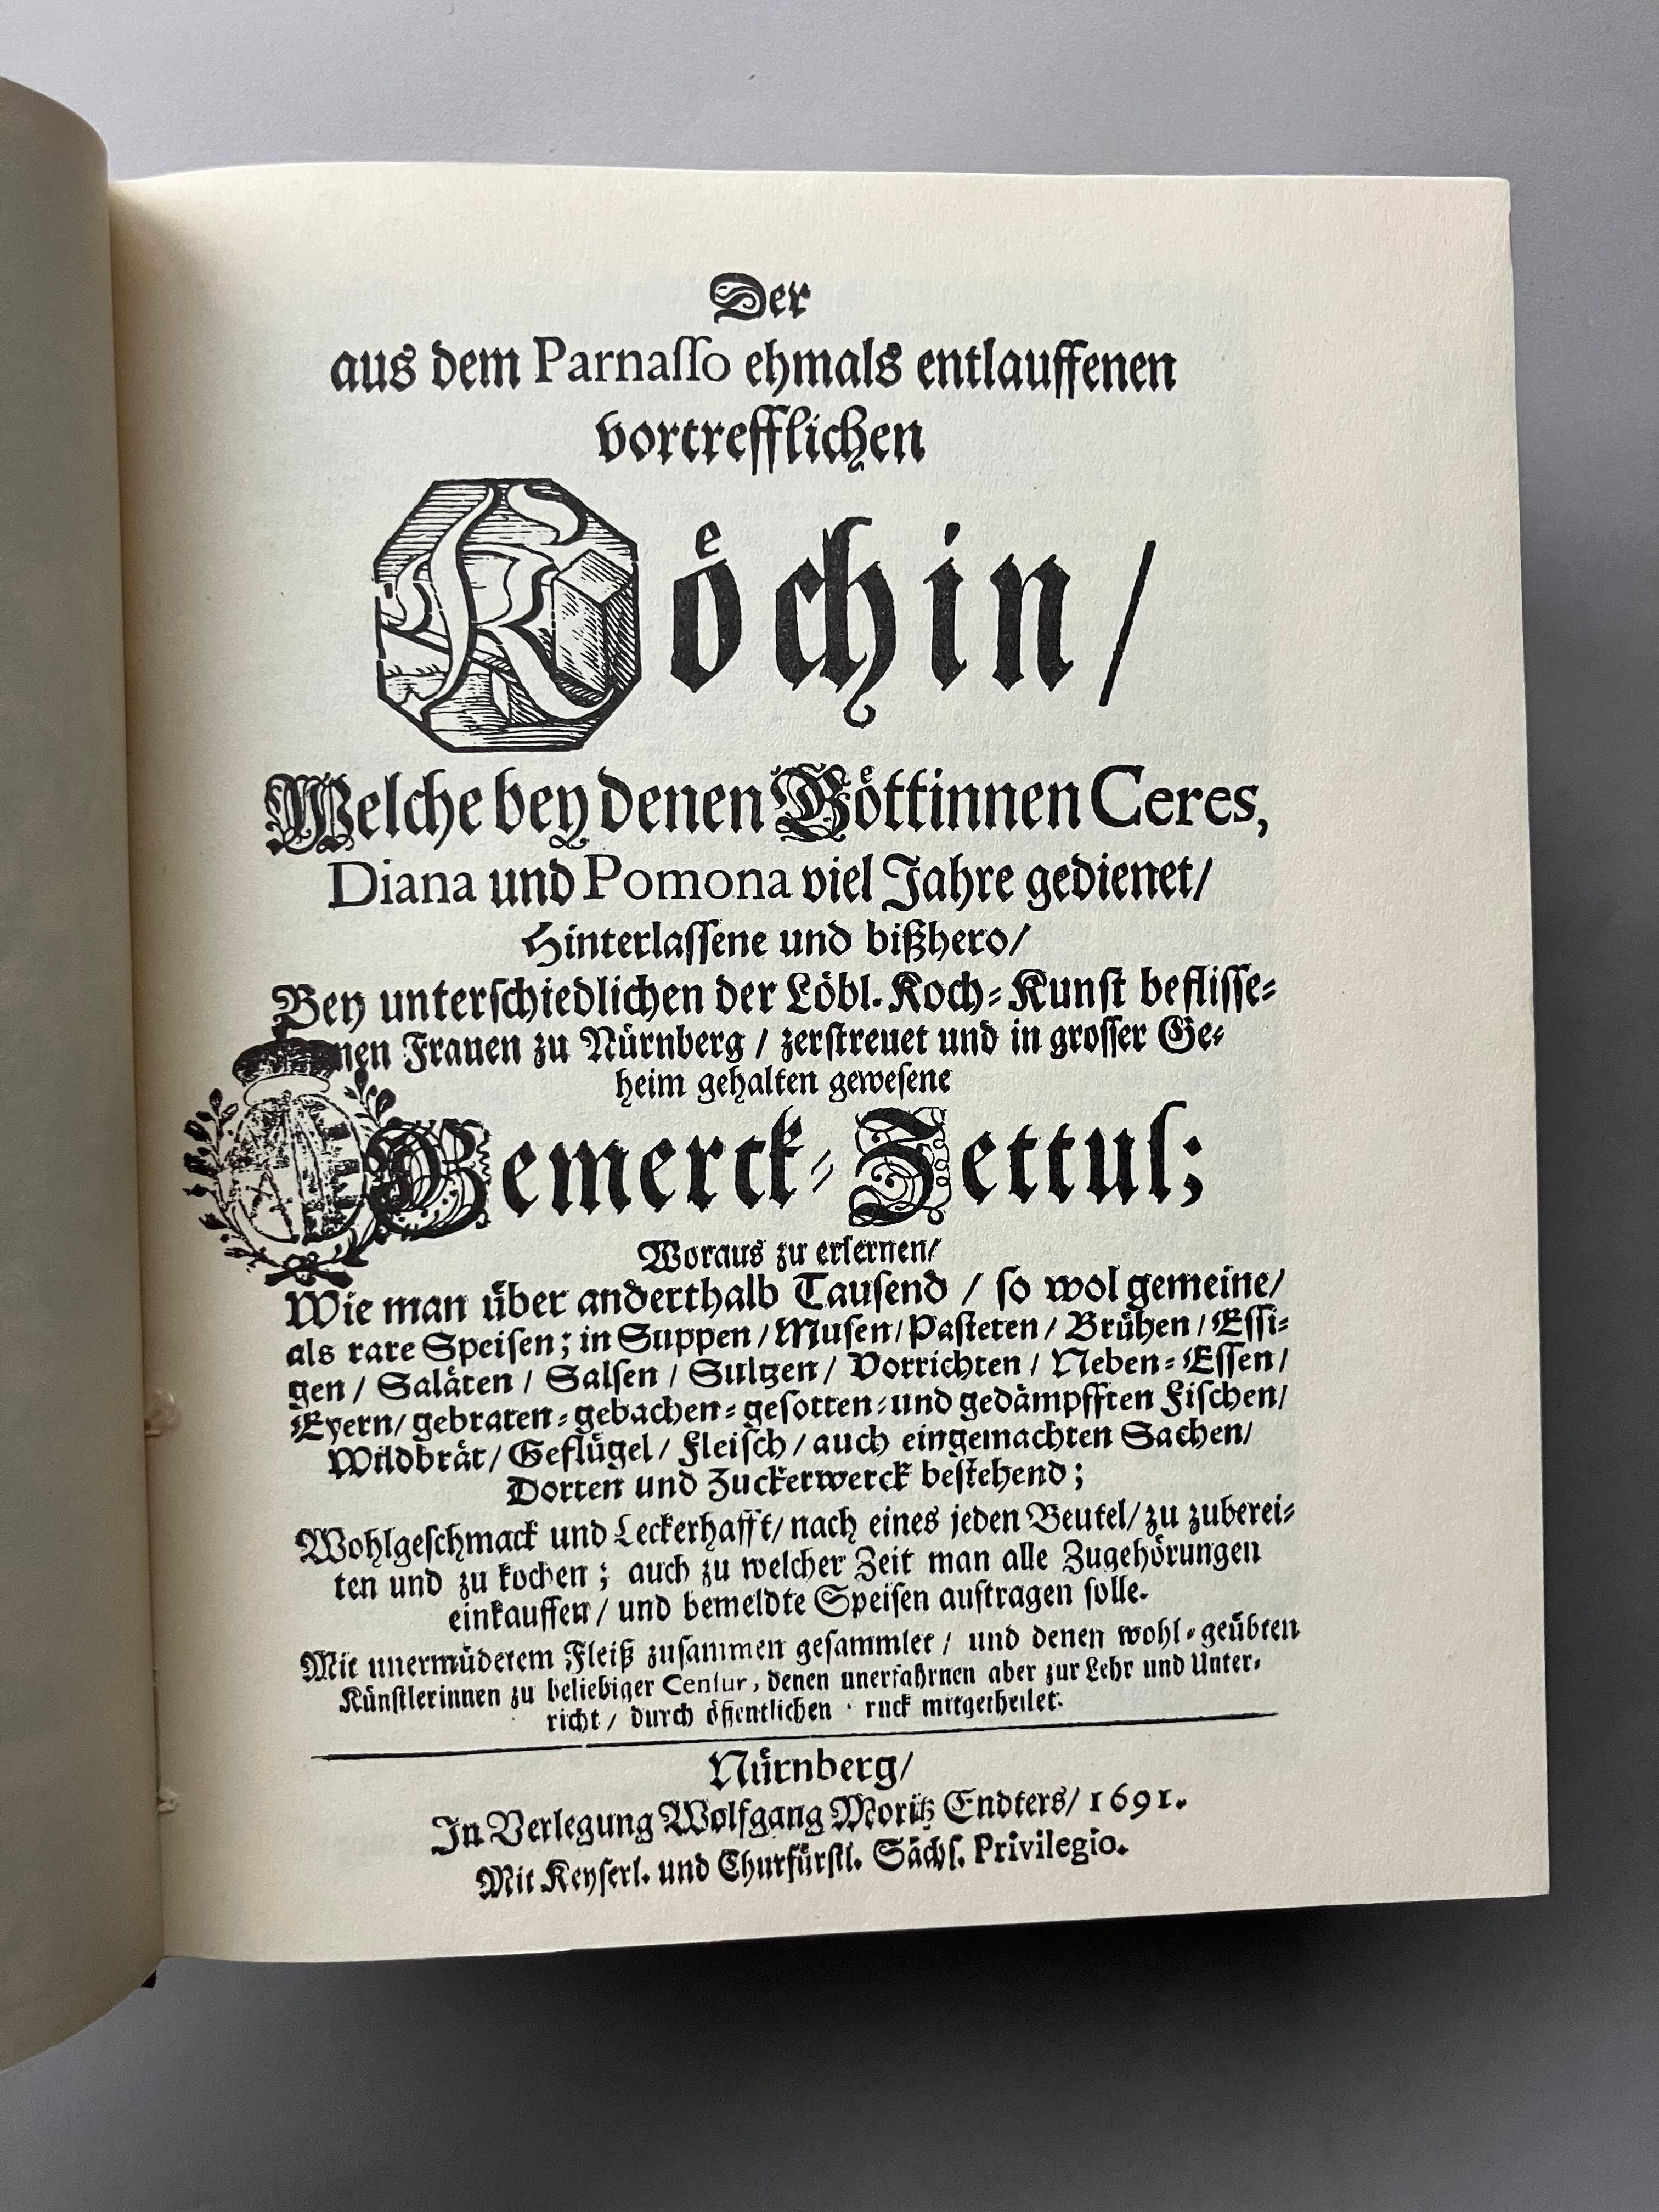 Der
aus dem Parnaſſo ehmals entlauffenen
vortrefflichen
Koͤchin/
Welche bey denen Goͤttinnen Ceres,
Diana und Pomona viel Jahre gedienet/
Hinterlaſſene und bißhero/
Bey unterſchiedlichen der Loͤbl. Koch-Kunſt befliſſe-
nen Frauen zu Nuͤrnberg / zerſtreuet und in groſſer Ge-
heim gehalten geweſene
Gemerck-Zettul;
Woraus zu erlernen/
Wie man uͤber anderthalb Tauſend / ſo wol gemeine/
als rare Speiſen; in Suppen / Muſen / Paſteten / Bruͤhen / Eſſi-
gen / Salaͤten / Salſen / Sultzen / Vorrichten / Neben-Eſſen /
Eyern / gebraten-gebachen-geſotten-und gedaͤmpfften Fiſchen/
Wildbraͤt / Gefluͤgel / Fleiſch / auch eingemachten Sachen/
Dorten und Zuckerwerck beſtehend;
Wohlgeſchmack und Leckerhafft/ nach eines jeden Beutel/ zu zuberei-
ten und zu kochen; auch zu welcher Zeit man alle Zugehoͤrungen
einkauffen / und bemeldte Speiſen auftragen ſolle.
Mit unermuͤdetem Fleiß zuſammen geſammlet / und denen wohl-geuͤbten
Kuͤnſtlerinnen zu beliebiger Cenſur, denen unerfahrnen aber zur Lehr und Unter-
richt / durch oͤffentlichen ruck mitgetheilet.
Nuͤrnberg/
In Verlegung Wolfgang Moritz Endters/ 1691.
Mit Keyſerl. und Churfuͤrſtl. Saͤchſ. Privilegio.